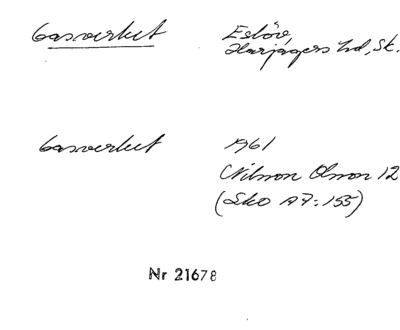 Gasverket Eslöv,
Harjagers hd, Sk.
Gasverket 1961
Nilsson Olsson 12
(Sko A7:155)
Nr 21678